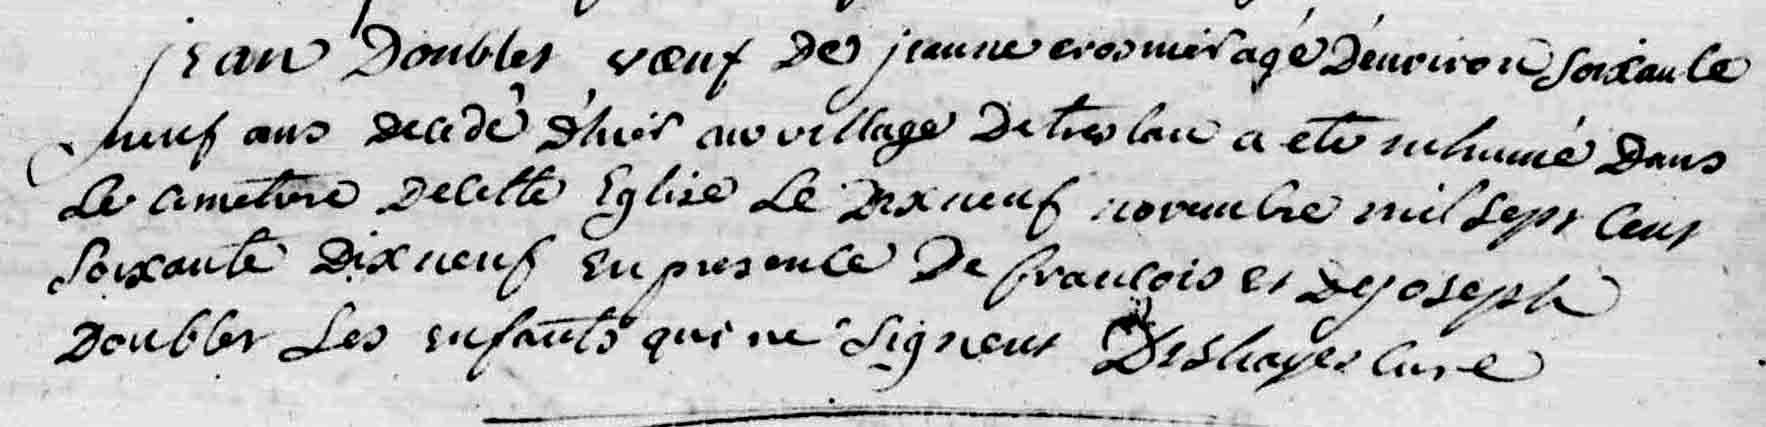 jean Doublet vœuf De jeanne crosnier agé D'environ soixante
neuf ans decedé d'hier au village De treslan a ete inhumé Dans
Le cimetiere De cette Eglise Le Dix neuf novembre mil sept cent
soixante Dix neuf En presence De francois et De joseph
Doublet Ses enfants qui ne signent Deshayes Cure